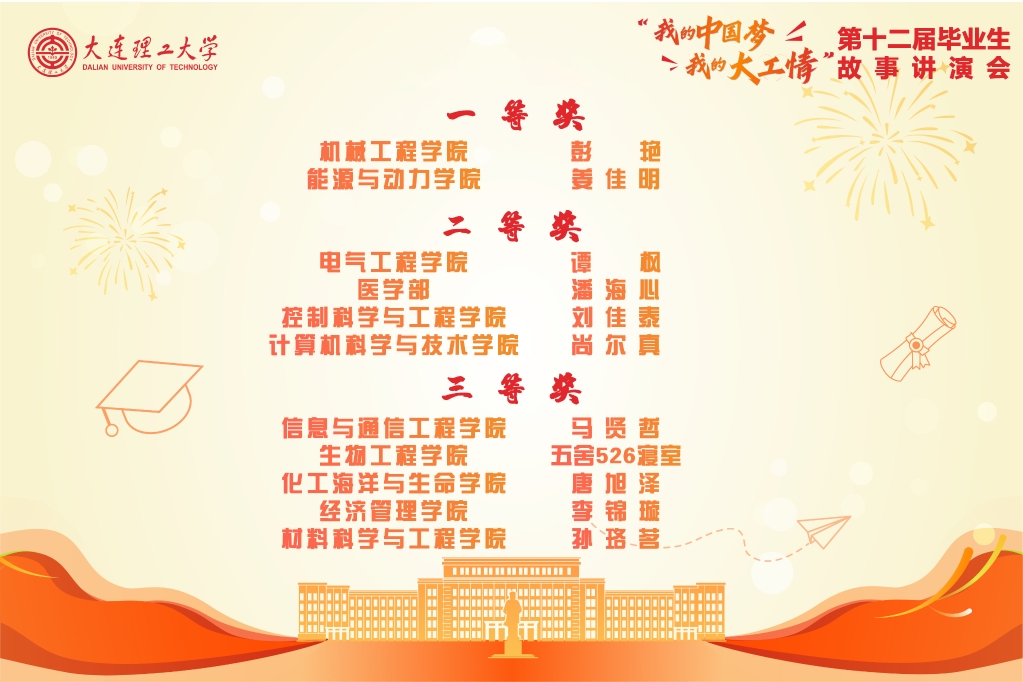 大连理工大学
DALIAN UNIVERSITY OF TECHNOLOGY
“我的中国梦
我的大工情”
第十二届毕业生
故事讲演会
一等奖
机械工程学院 彭艳
能源与动力学院 姜佳明
二等奖
电气工程学院 谭枫
医学部 潘海心
控制科学与工程学院 刘佳泰
计算机科学与技术学院 尚尔真
三等奖
信息与通信工程学院 马贤哲
生物工程学院 五舍526寝室
化工海洋与生命学院 唐旭泽
经济管理学院 李锦璇
材料科学与工程学院 孙珞茗